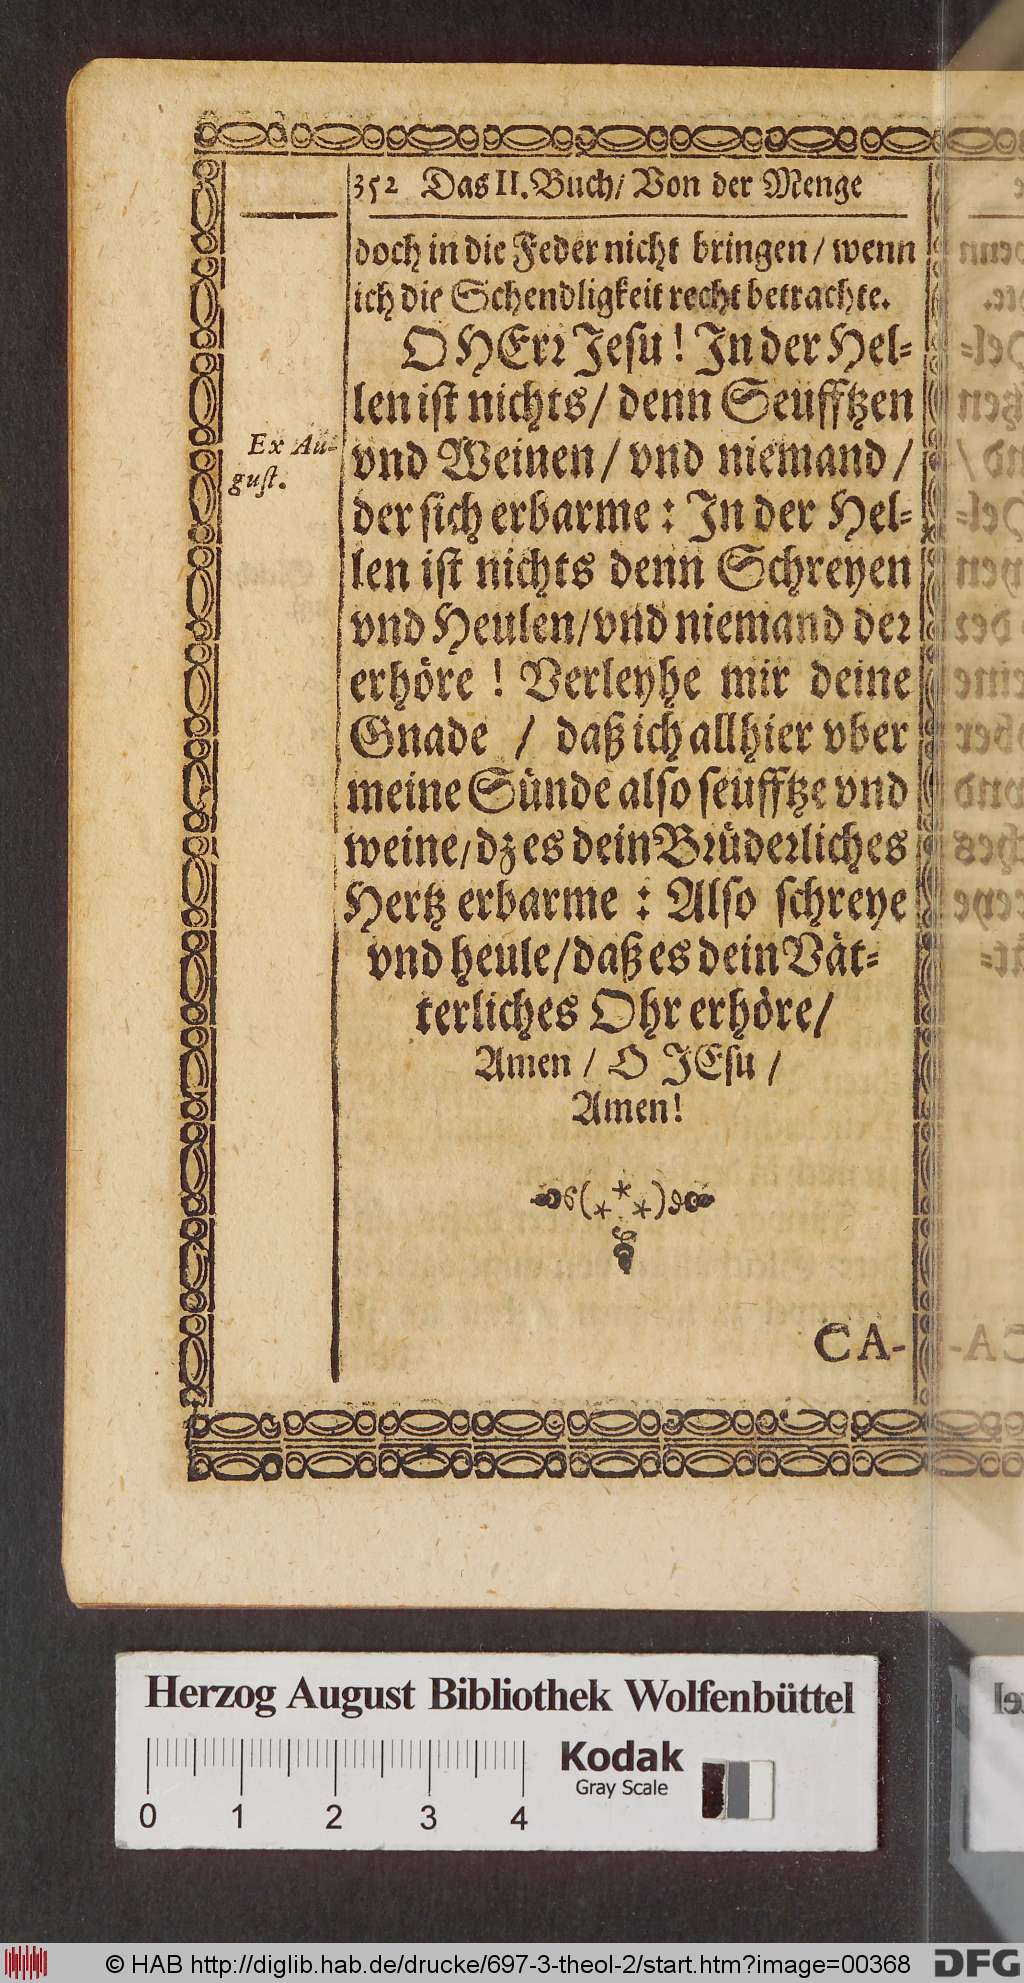 352 Das II. Buch/ Von der Menge
doch in die Feder nicht bringen/ wenn
ich die Schendligkeit recht betrachte.
O HErr Jesu! In der Hel-
len ist nichts/ denn Seufftzen
Ex Au-
gust.
vnd Weinen/ vnd niemand/
der sich erbarme: In der Hel-
len ist nichts denn Schreyen
vnd Heulen/ vnd niemand der
erhöre! Verleyhe mir deine
Gnade / daß ich allhier vber
meine Sünde also seufftze vnd
weine/ dz es dein Brüderliches
Hertz erbarme: Also schreye
vnd heule/ daß es dein Vät-
terliches Ohr erhöre/
Amen/ O JEsu/
Amen!
CA-
Herzog August Bibliothek Wolfenbüttel
Kodak
Gray Scale
0 1 2 3 4
© HAB http://diglib.hab.de/drucke/697-3-theol-2/start.htm?image=00368
DFG